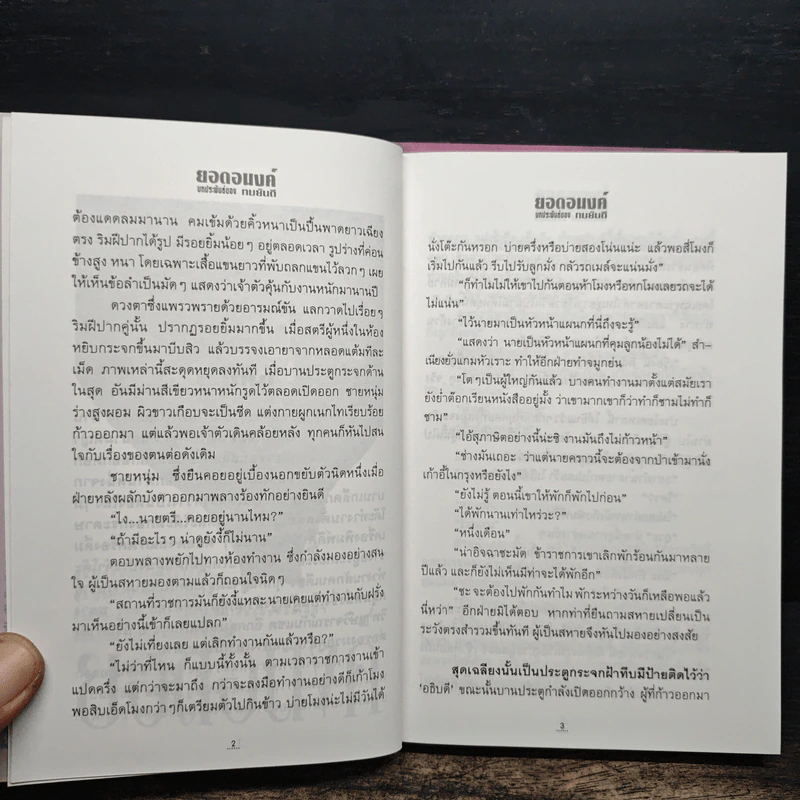 ยอดอนงค์
บทประพันธ์ของ ทมยันตี
ต้องแดดลมมานาน คมเข้มด้วยคิ้วหนาเป็นปื้นพาดยาวเฉียง
ตรง ริมฝีปากได้รูป มีรอยยิ้มน้อยๆ อยู่ตลอดเวลา รูปร่างที่ค่อน
ข้างสูง หนา โดยเฉพาะเสื้อแขนยาวที่พับถลกแขนไว้ลวกๆ เผย
ให้เห็นข้อลำเป็นมัดๆ แสดงว่าเจ้าตัวคุ้นกับงานหนักมานานปี
ดวงตาซึ่งแพรวพรายด้วยอารมณ์ขัน แลกวาดไปเรื่อยๆ
ริมฝีปากคู่นั้น ปรากฏรอยยิ้มมากขึ้น เมื่อสตรีผู้หนึ่งในห้อง
หยิบกระจกขึ้นมาบีบสิว แล้วบรรจงเอายาจากหลอดแต้มทีละ
เม็ด ภาพเหล่านี้สะดุดหยุดลงทันที เมื่อบานประตูกระจกด้าน
ในสุด อันมีม่านสีเขียวหนาหนักรูดไว้ตลอดเปิดออก ชายหนุ่ม
ร่างสูงผอม ผิวขาวเกือบจะเป็นซีด แต่งกายผูกเนกไทเรียบร้อย
ก้าวออกมา แต่แล้วพอเจ้าตัวเดินคล้อยหลัง ทุกคนก็หันไปสน
ใจกับเรื่องของตนต่อดังเดิม
ชายหนุ่ม ซึ่งยืนคอยอยู่เบื้องนอกขยับตัวนิดหนึ่งเมื่อ
ฝ่ายหลังผลักบังตาออกมาพลางร้องทักอย่างยินดี
“ไง...นายตรี...คอยอยู่นานไหม?”
“ถ้ามีอะไรๆ น่าดูยังงี้ก็ไม่นาน”
ตอบพลางพยักไปทางห้องทำงาน ซึ่งกำลังมองอย่างสน
ใจ ผู้เป็นสหายมองตามแล้วก็ถอนใจนิดๆ
“สถานที่ราชการมันก็ยังงี้แหละ นายเคยแต่ทำงานกับฝรั่ง
มาเห็นอย่างนี้เข้าก็เลยแปลก”
“ยังไม่เที่ยงเลย แต่เลิกทำงานกันแล้วหรือ?”
“ไม่ว่าที่ไหน ก็แบบนี้ทั้งนั้น ตามเวลาราชการงานเข้า
แปดครึ่ง แต่กว่าจะมาถึง กว่าจะลงมือทำงานอย่างดีก็เก้าโมง
พอสิบเอ็ดโมงกว่าๆ ก็เตรียมตัวไปกินข้าว บ่ายโมงน่ะไม่มีวันได้
2
ยอดอนงค์
บทประพันธ์ของ ทมยันตี
นั่งโต๊ะกันหรอก บ่ายครึ่งหรือบ่ายสองโน่นแน่ะ แล้วพอสี่โมงก็
เริ่มไปกันแล้ว รีบไปรับลูกมั่ง กลัวรถเมล์จะแน่นมั่ง”
“ก็ทำไมไม่ให้เขาไปกันตอนห้าโมงหรือหกโมงเลยรถจะได้
ไม่แน่น”
“ไว้นายมาเป็นหัวหน้าแผนกที่นี่ถึงจะรู้”
“แสดงว่า นายเป็นหัวหน้าแผนกที่คุมลูกน้องไม่ได้” สำ-
เนียงยั่วแกมหัวเราะ ทำให้อีกฝ่ายทำจมูกย่น
“โตๆ เป็นผู้ใหญ่กันแล้ว บางคนทำงานมาตั้งแต่สมัยเรา
ยังย่ำต๊อกเรียนหนังสืออยู่มั้ง ว่าเขามากเขาก็ว่าทำก็ชามไม่ทำก็
ชาม”
“ไอ้สุภาษิตอย่างนี้น่ะซิ งานมันถึงไม่ก้าวหน้า”
“ช่างมันเถอะ ว่าแต่นายคราวนี้จะต้องจากป่าเข้ามานั่ง
เก้าอี้ในกรุงหรือยังไง”
“ยังไม่รู้ ตอนนี้เขาให้พักก็พักไปก่อน”
“ได้พักนานเท่าไหร่วะ?”
“หนึ่งเดือน”
“น่าอิจฉาชะมัด ข้าราชการเขาเลิกพักร้อนกันมาหลาย
ปีแล้ว และก็ยังไม่เห็นมีท่าจะได้พักอีก”
“ชะ จะต้องไปพักกันทำไม พักระหว่างวันก็เหลือพอแล้ว
นี่หว่า” อีกฝ่ายมิได้ตอบ หากท่าที่ยืนถามสหายเปลี่ยนเป็น
ระวังตรงสำรวมขึ้นทันที ผู้เป็นสหายจึงหันไปมองอย่างสงสัย
สุดเฉลียงนั้นเป็นประตูกระจกฝ้าทึบมีป้ายติดไว้ว่า
‘อธิบดี’ ขณะนั้นบานประตูกำลังเปิดออกกว้าง ผู้ที่ก้าวออกมา
3